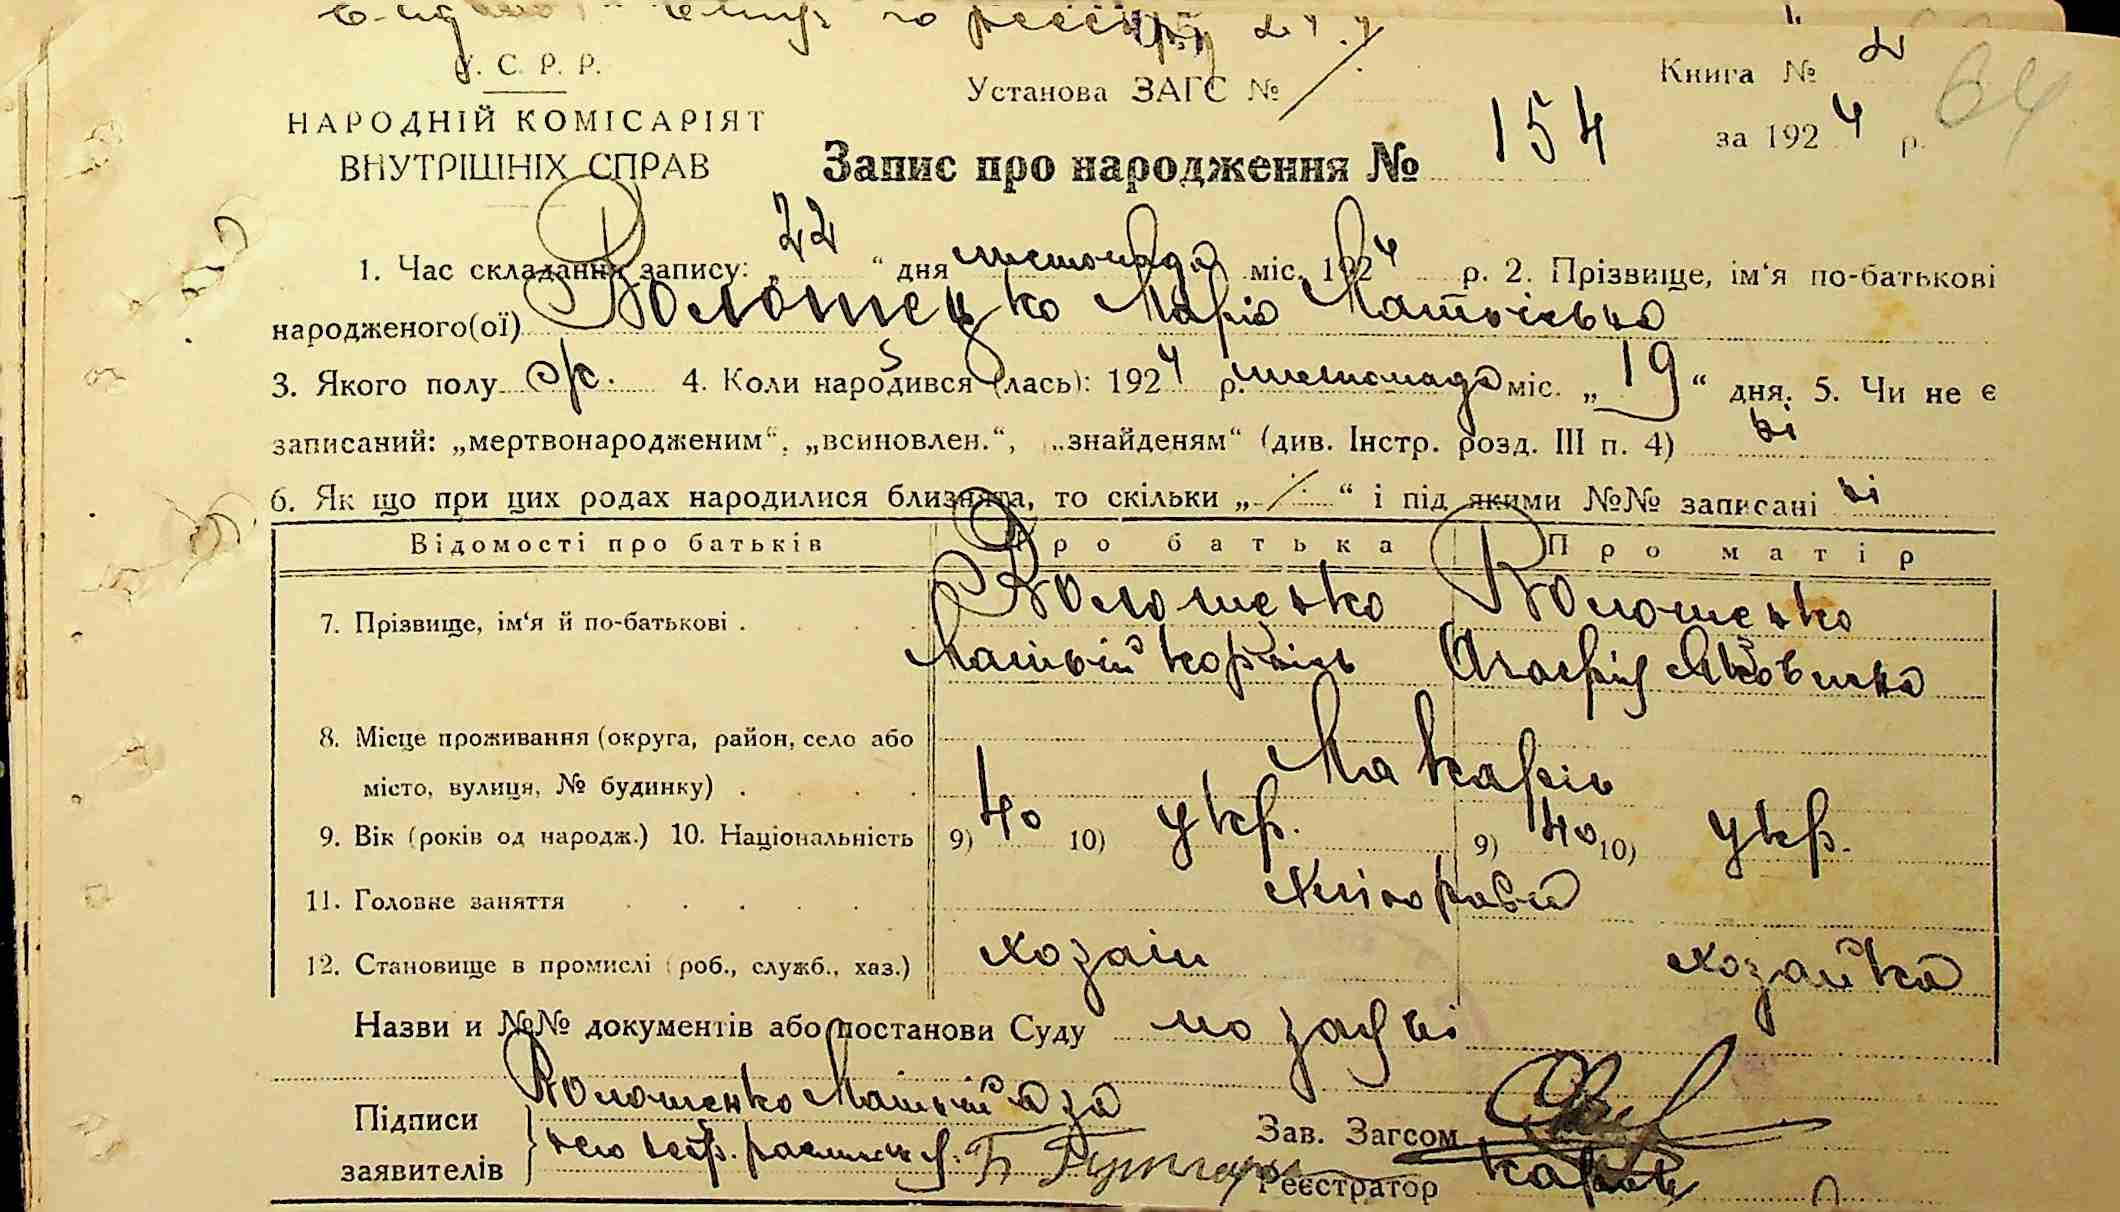 У. С. Р. Р.
НАРОДНІЙ КОМІСАРІЯТ
ВНУТРІШНІХ СПРАВ
Установа ЗАГС №
Книга № 2
64
за 1924 р.
Запис про народження № 154
1. Час складання запису: „22“ дня листопада міс. 1924 р. 2. Прізвище, ім‘я по-батькові
народженого(ої) Марія Матвієвна
3. Якого полу ж. 4. Коли народився (лась): 1924 р. листопада міс. „19“ дня. 5. Чи не є
записаний: „мертвонародженим“, „всиновлен.“, „знайденям“ (див. Інстр. розд. III п. 4) ні
6. Як що при цих родах народилися близнята, то скільки „ “ і під якими №№ записані ні
Відомості про батьків Про батька Про матір
7. Прізвище, ім‘я й по-батькові . Волошенко Волошенко
Матвій Корнієв Яковлевна
8. Місце проживання (округа, район, село або
місто, вулиця, № будинку) . Макарів
9. Вік (років од народж.) 10. Національність 9) 40 10) укр. 9) 40 10) укр.
11. Головне заняття Хліборобст
12. Становище в промислі (роб., служб., хаз.) хозаін хозайка
Назви и №№ документів або постанови Суду по заяві
Підписи Волошенко Матвій а за
заявителів його
Зав. Загсом
Реєстратор